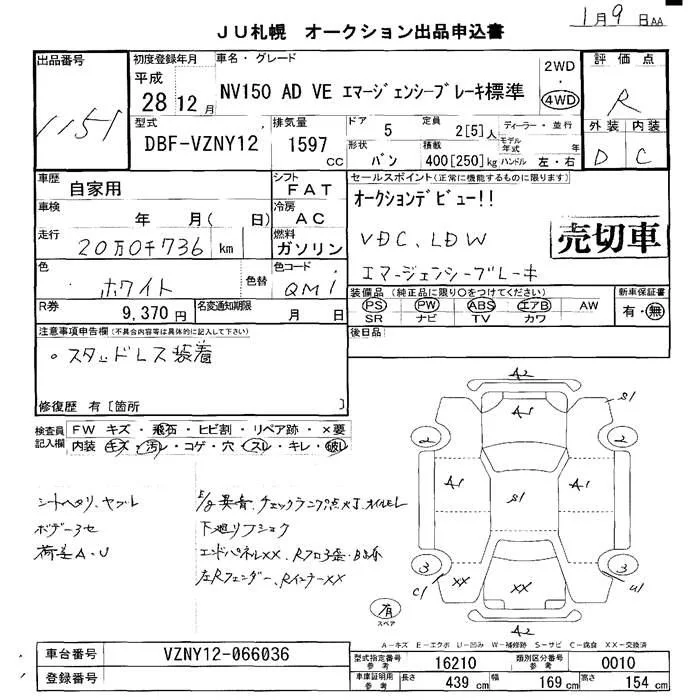 1月9日AA
JU札幌 オークション出品申込書
出品番号 初度登録年月 車名・グレード 2WD 評価点
1151 平成28 12月 NV150 AD VE エマージェンシーブレーキ標準 4WD R
型式 排気量 ドア 5 定員 2[5]人 ディーラー・並行 外装 内装
DBF-VZNY12 1597cc 形状 バン 積載 400[250]kg モデル年式 年 ハンドル 左・右 D C
車歴 自家用 シフト FAT セールスポイント(正常に機能するものに限ります)
車検 年 月( 日) 冷房 AC オークションデビュー!!
走行 20万0千736 km 燃料 ガソリン VDC、LDW 売切車
色 ホワイト 色替 色コード QM1 エマージェンシーブレーキ
R券 9,370円 名変通知期限 月 日 装備品(純正品に限り○をつけてください) 新車保証書
PS PW ABS エアB AW 有・無
SR ナビ TV カワ
注意事項申告欄(不具合内容等は具体的に記入して下さい) 後日品
。スタッドレス装着
修復歴 有[箇所 ]
検査員記入欄 FW キズ・飛石・ヒビ割・リペア跡・×要
内装 キズ・汚レ・コゲ・穴・スレ・キレ・破レ
シートヘタリ、ヤブレ
ボデー3セ
荷差A・U
E/g異音、チェックランプ点灯、オイルモレ
下廻リフショク
エンドパネルXX、Rフロ
左Rフェンダー、RインナーXX
A2
A1 S1
2 2
A1 S1 A1
3 XX XX 3
C1 U1
有
スペア
A2
A-キズ E-エクボ U-凹み W-補修跡 S-サビ C-腐食 XX-交換済
車台番号 VZNY12-066036
登録番号
型式指定番号 参考 16210 類別区分番号 参考 0010
車庫証明用 参考 長さ 439 cm 幅 169 cm 高さ 154 cm